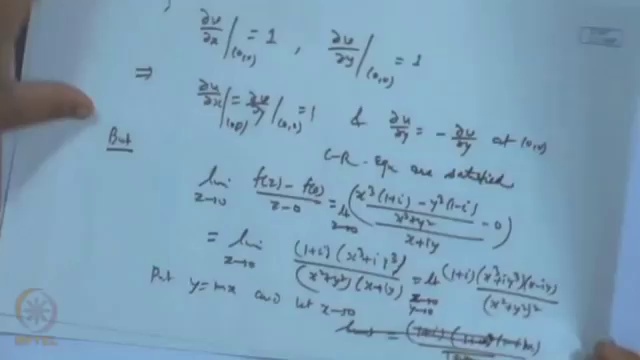 ∂v/∂x|(0,0) = 1 , ∂v/∂y|(0,0) = 1
⇒ ∂u/∂x|(0,0) = ∂v/∂y|(0,0) = 1 & ∂u/∂y = -∂v/∂y at (0,0)
C-R- Equ are satisfied
But
lim z→0 (f(z) - f(0))/(z-0) = lt z→0 ((x³(1+i) - y³(1-i))/(x²+y²) - 0)/(x+iy)
= lim z→0 ((1+i)(x³+iy³))/((x²+y²)(x+iy)) = lt x→0 y→0 ((1+i)(x³+iy³)(x-iy))/(x²+y²)²
Put y=mx and let x→0